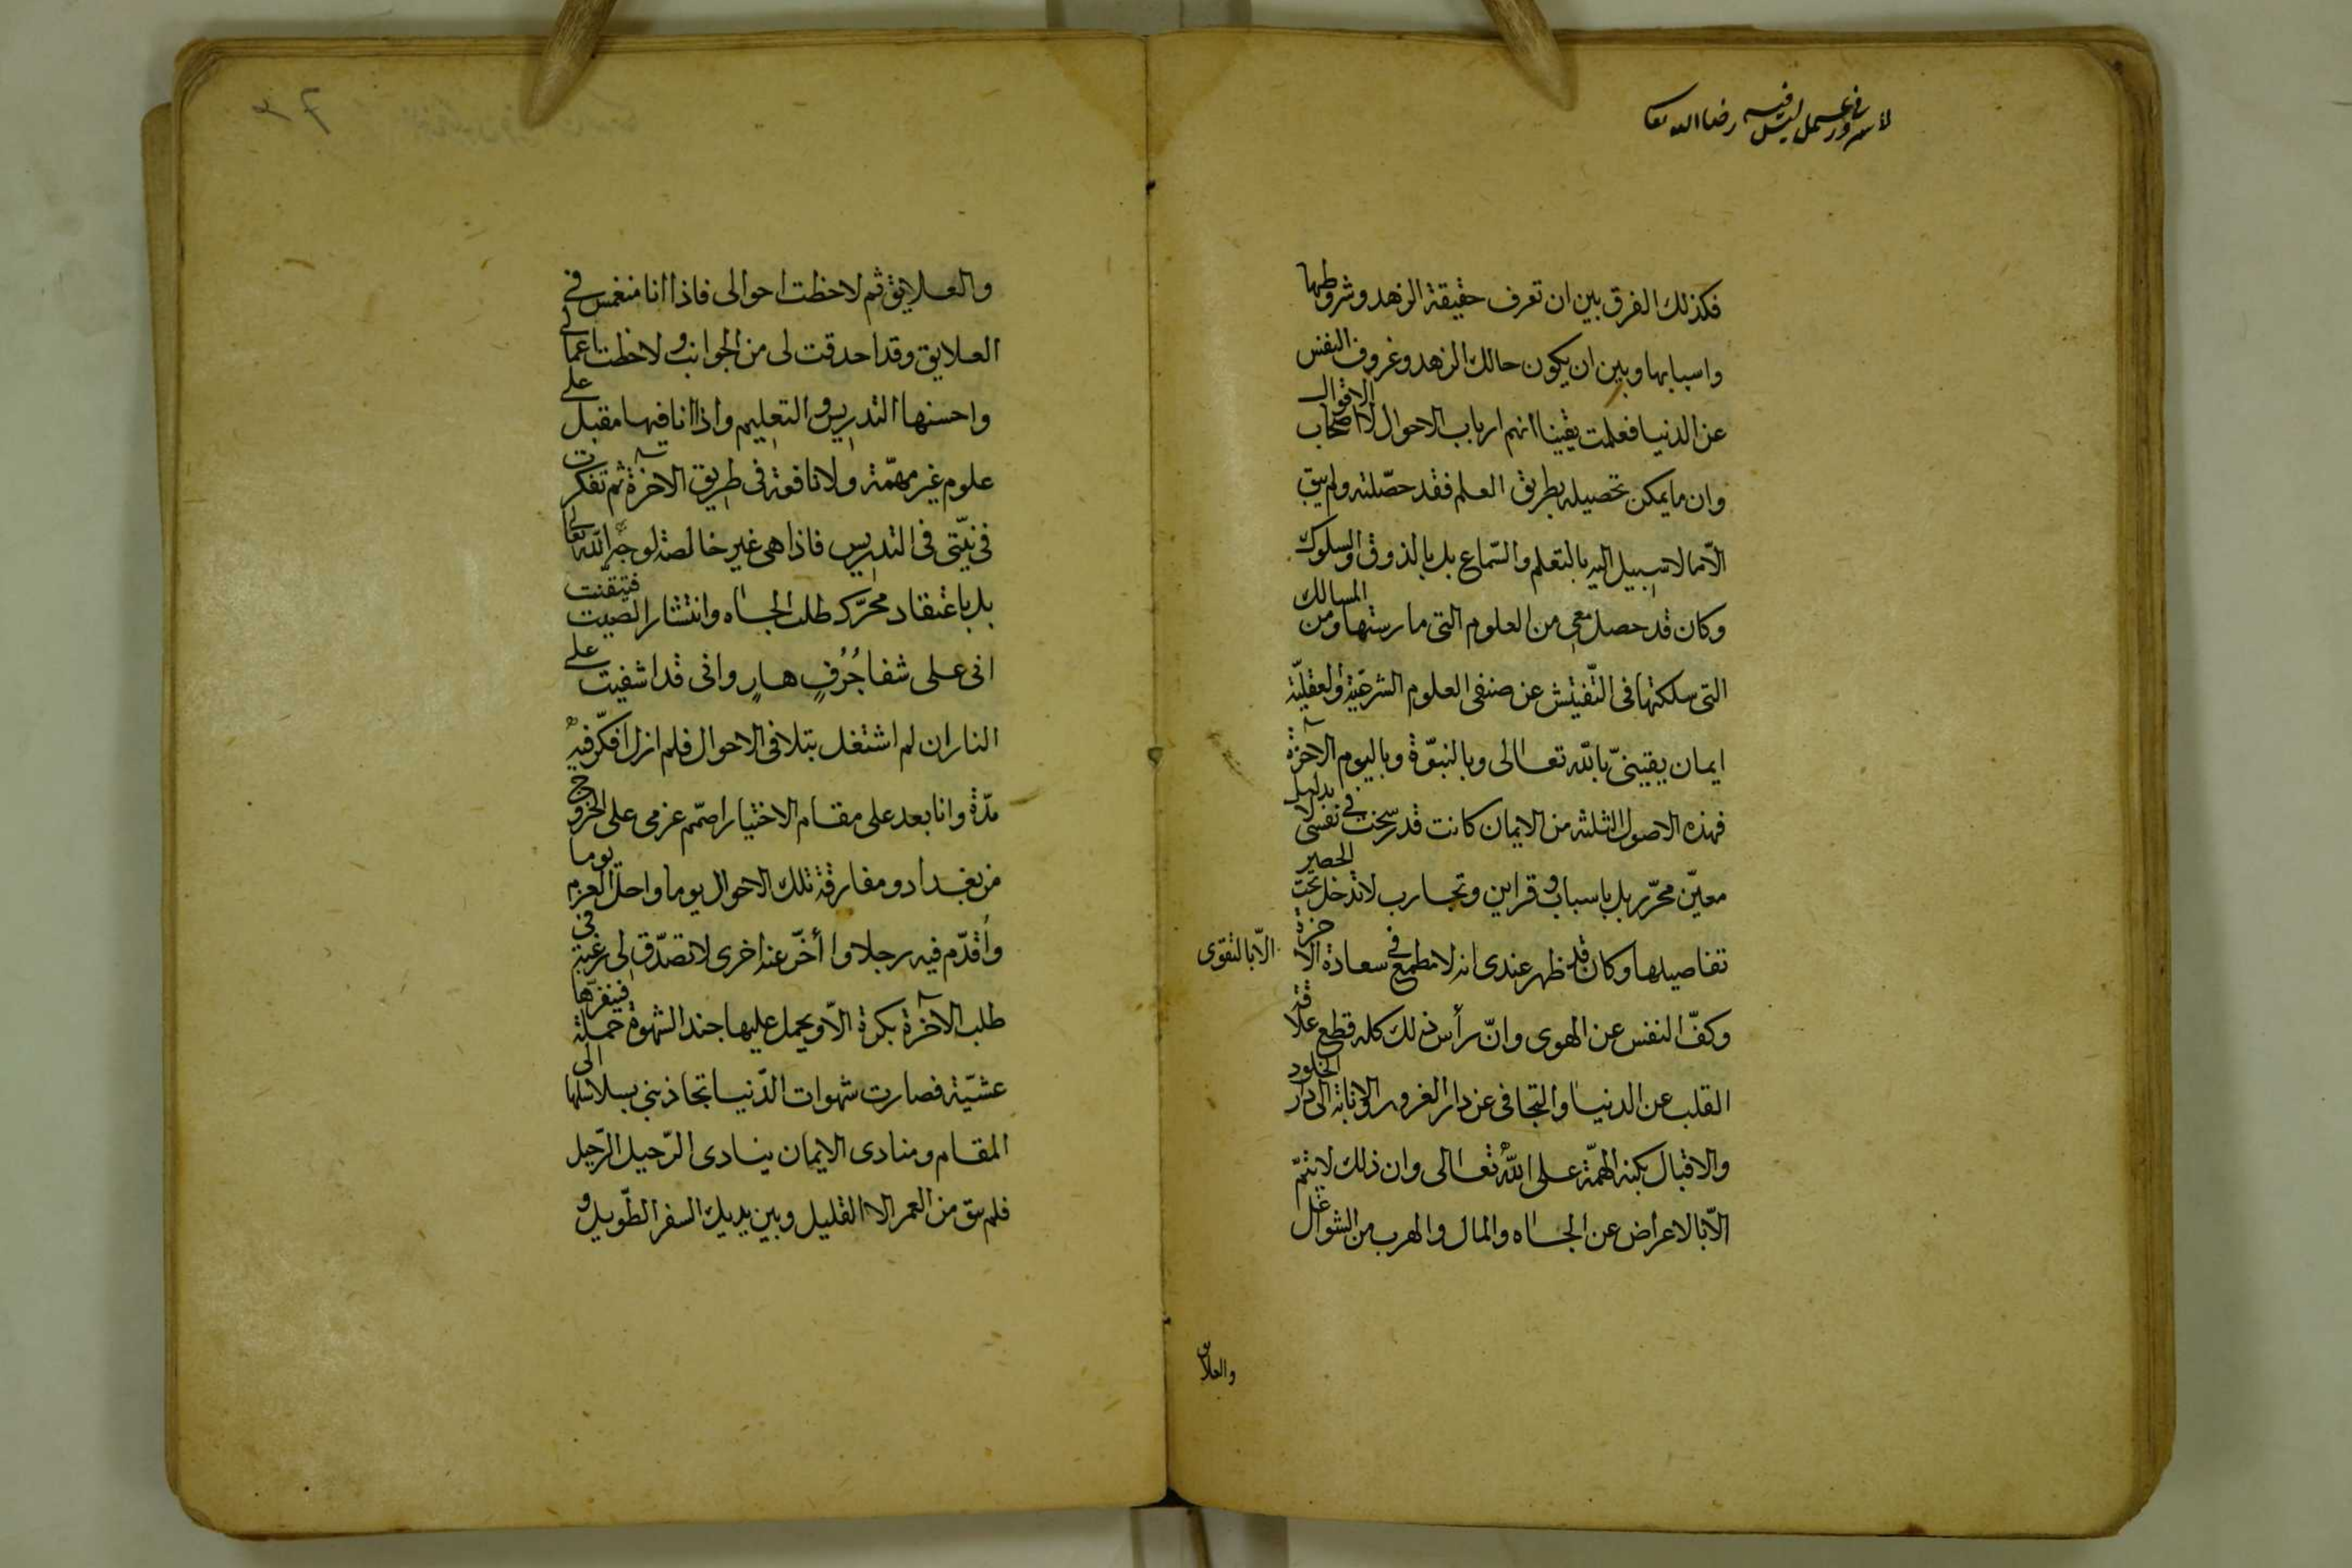 لا سرور في عمل ليس فيه رضا الله تعا
فكذلك الفرق بين ان تعرف حقيقة الزهد وشروطها
واسبابها وبين ان يكون حالك الزهد وعزوف النفس
عن الدنيا فعلمت يقينا انهم ارباب الاحوال لا اصحاب الاقوال
وان ما يمكن تحصيله بطريق العلم فقد حصّلته ولم يبق
الّا ما لا سبيل اليه بالتعلم والسّماع بل بالذوق والسلوك
وكان قد حصل معى من العلوم التى مارستها ومن المسالك
التى سلكتها فى التّفتيش عن صنفى العلوم الشرعيّة والعقليّة
ايمان يقينىّ بالله تعالى وبالنبوّة وباليوم الآخرة
فهذه الاصول الثلثة من الايمان كانت قد رسخت في نفسى لا بدليل
معيّن محرّر بل باسباب وقراين وتجارب لا تدخل تحت الحصر
تفاصيلها وكان قد ظهر عندى انه لا مطمع في سعادة الاخرة الّا بالتقوى
وكفّ النفس عن الهوى وانّ رأس ذلك كله قطع علاقة
القلب عن الدنيا والتجافى عن دار الغرور والانابة الى دار الخلود
والاقبال بكنه الهمّة على الله تعالى وان ذلك لا يتمّ
الّا بالاعراض عن الجاه والمال والهرب من الشواغل
والعلايق
والعلايق ثم لاحظت احوالى فاذا انا منغمس في
العلايق وقد احدقت لى من الجوانب ولاحظت اعمالى
واحسنها التدريس والتعليم واذا انا فيها مقبل على
علوم غير مهمّة ولا نافعة فى طريق الآخرة ثم تفكرت
فى نيّتى فى التدريس فاذا هى غير خالصة لوجه الله تعالى
بل باعتقاد محرّكه طلب الجاه وانتشار الصيت فتيقّنت
انى على شفا جُرُفٍ هارٍ وانى قد اشفيت على
النار ان لم اشتغل بتلافى الاحوال فلم ازل افكّر فيه
مدّة وانا بعد على مقام الاختيار اصمّم عزمى على الخروج
من بغداد ومفارقة تلك الاحوال يوما واحلّ العزم يوما
وأقدّم فيه رجلا واأخّر عنه اخرى لا تصدّق لى رغبة فى
طلب الآخرة بكرة الّا ويحمل عليها جند الشهوة حملة فينفرها
عشيّة فصارت شهوات الدّنيا تجاذبنى بسلاسلها الى
المقام ومنادى الايمان ينادى الرّحيل الرّحيل
فلم يبق من العمر الا القليل وبين يديك السفر الطّويل و